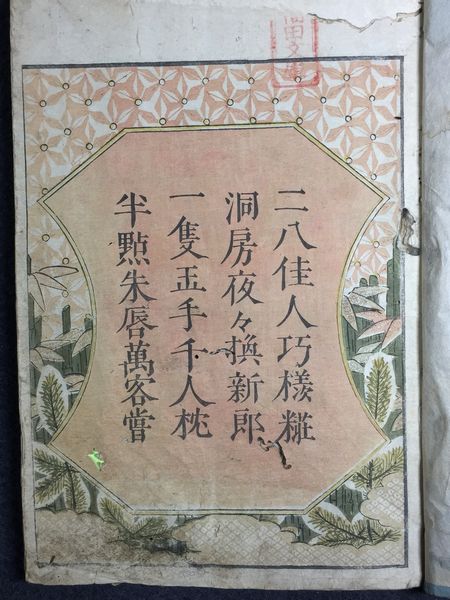 二八佳人巧樣糚
洞房夜々換新郎
一隻玉手千人枕
半㸃朱唇萬客嘗